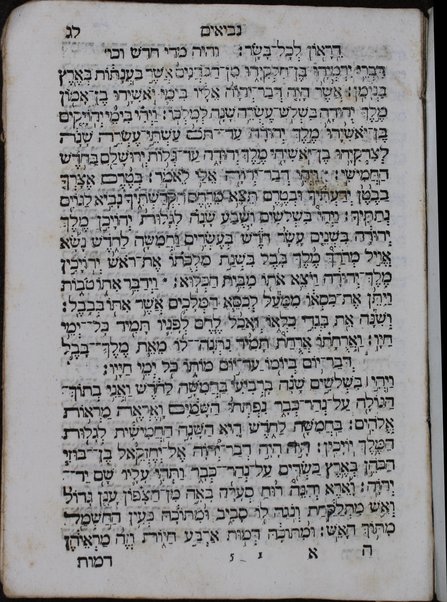 נביאים לג
דֵרָאוֹן לְכָל־בָּשָׂר׃ והיה מדי חדש וכו׳
דִּבְרֵי יִרְמְיָהוּ בֶּן חִלְקִיָּהוּ מִן־הַכֹּהֲנִים אֲשֶׁר בַּעֲנָתוֹת בְּאֶרֶץ
בִּנְיָמִן׃ אֲשֶׁר הָיָה דְבַר־יְהוָה אֵלָיו בִּימֵי יֹאשִׁיָּהוּ בֶן־אָמוֹן
מֶלֶךְ יְהוּדָה בִּשְׁלֹשׁ עֶשְׂרֵה שָׁנָה לְמָלְכוֹ׃ וַיְהִי בִּימֵי יְהוֹיָקִים
בֶּן יֹאשִׁיָּהוּ מֶלֶךְ יְהוּדָה עַד־תֹּם עַשְׁתֵּי עֶשְׂרֵה שָׁנָה
לְצִדְקִיָּהוּ בֶן־יֹאשִׁיָּהוּ מֶלֶךְ יְהוּדָה עַד־גְּלוֹת יְרוּשָׁלִַם בַּחֹדֶשׁ
הַחֲמִישִׁי׃ וַיְהִי דְבַר יְהוָה אֵלַי לֵאמֹר׃ בְּטֶרֶם אֶצָּרְךָ
בַבֶּטֶן יְדַעְתִּיךָ וּבְטֶרֶם תֵּצֵא מֵרֶחֶם הִקְדַּשְׁתִּיךָ נָבִיא לַגּוֹיִם
נְתַתִּיךָ׃ וַיְהִי בִשְׁלֹשִׁים וָשֶׁבַע שָׁנָה לְגָלוּת יְהוֹיָכִן מֶלֶךְ
יְהוּדָה בִּשְׁנֵים עָשָׂר חֹדֶשׁ בְּעֶשְׂרִים וַחֲמִשָּׁה לַחֹדֶשׁ נָשָׂא
אֱוִיל מְרֹדַךְ מֶלֶךְ בָּבֶל בִּשְׁנַת מַלְכֻתוֹ אֶת־רֹאשׁ יְהוֹיָכִין
מֶלֶךְ־יְהוּדָה וַיֹּצֵא אֹתוֹ מִבֵּית הַכְּלוּא׃ וַיְדַבֵּר אִתּוֹ טֹבוֹת
וַיִּתֵּן אֶת־כִּסְאוֹ מִמַּעַל לְכִסֵּא הַמְּלָכִים אֲשֶׁר אִתּוֹ בְּבָבֶל׃
וְשִׁנָּה אֵת בִּגְדֵי כִלְאוֹ וְאָכַל לֶחֶם לְפָנָיו תָּמִיד כָּל־יְמֵי
חַיָּיו׃ וַאֲרֻחָתוֹ אֲרֻחַת תָּמִיד נִתְּנָה־לּוֹ מֵאֵת מֶלֶךְ־בָּבֶל
דְּבַר־יוֹם בְּיוֹמוֹ עַד־יוֹם מוֹתוֹ כֹּל יְמֵי חַיָּיו׃
וַיְהִי בִּשְׁלֹשִׁים שָׁנָה בָּרְבִיעִי בַּחֲמִשָּׁה לַחֹדֶשׁ וַאֲנִי בְתוֹךְ
הַגּוֹלָה עַל־נְהַר־כְּבָר נִפְתְּחוּ הַשָּׁמַיִם וָאֶרְאֶה מַרְאוֹת
אֱלֹהִים׃ בַּחֲמִשָּׁה לַחֹדֶשׁ הִיא הַשָּׁנָה הַחֲמִישִׁית לְגָלוּת
הַמֶּלֶךְ יוֹיָכִין׃ הָיֹה הָיָה דְבַר־יְהוָה אֶל יְחֶזְקֵאל בֶּן־בּוּזִי
הַכֹּהֵן בְּאֶרֶץ כַּשְׂדִּים עַל־נְהַר־כְּבָר וַתְּהִי עָלָיו שָׁם יַד־
יְהוָה׃ וָאֵרֶא וְהִנֵּה רוּחַ סְעָרָה בָּאָה מִן־הַצָּפוֹן עָנָן גָּדוֹל
וְאֵשׁ מִתְלַקַּחַת וְנֹגַהּ לוֹ סָבִיב וּמִתּוֹכָהּ כְּעֵין הַחַשְׁמַל
מִתּוֹךְ הָאֵשׁ׃ וּמִתּוֹכָהּ דְּמוּת אַרְבַּע חַיּוֹת וְזֶה מַרְאֵיהֶן
ה א 1 5 דמות